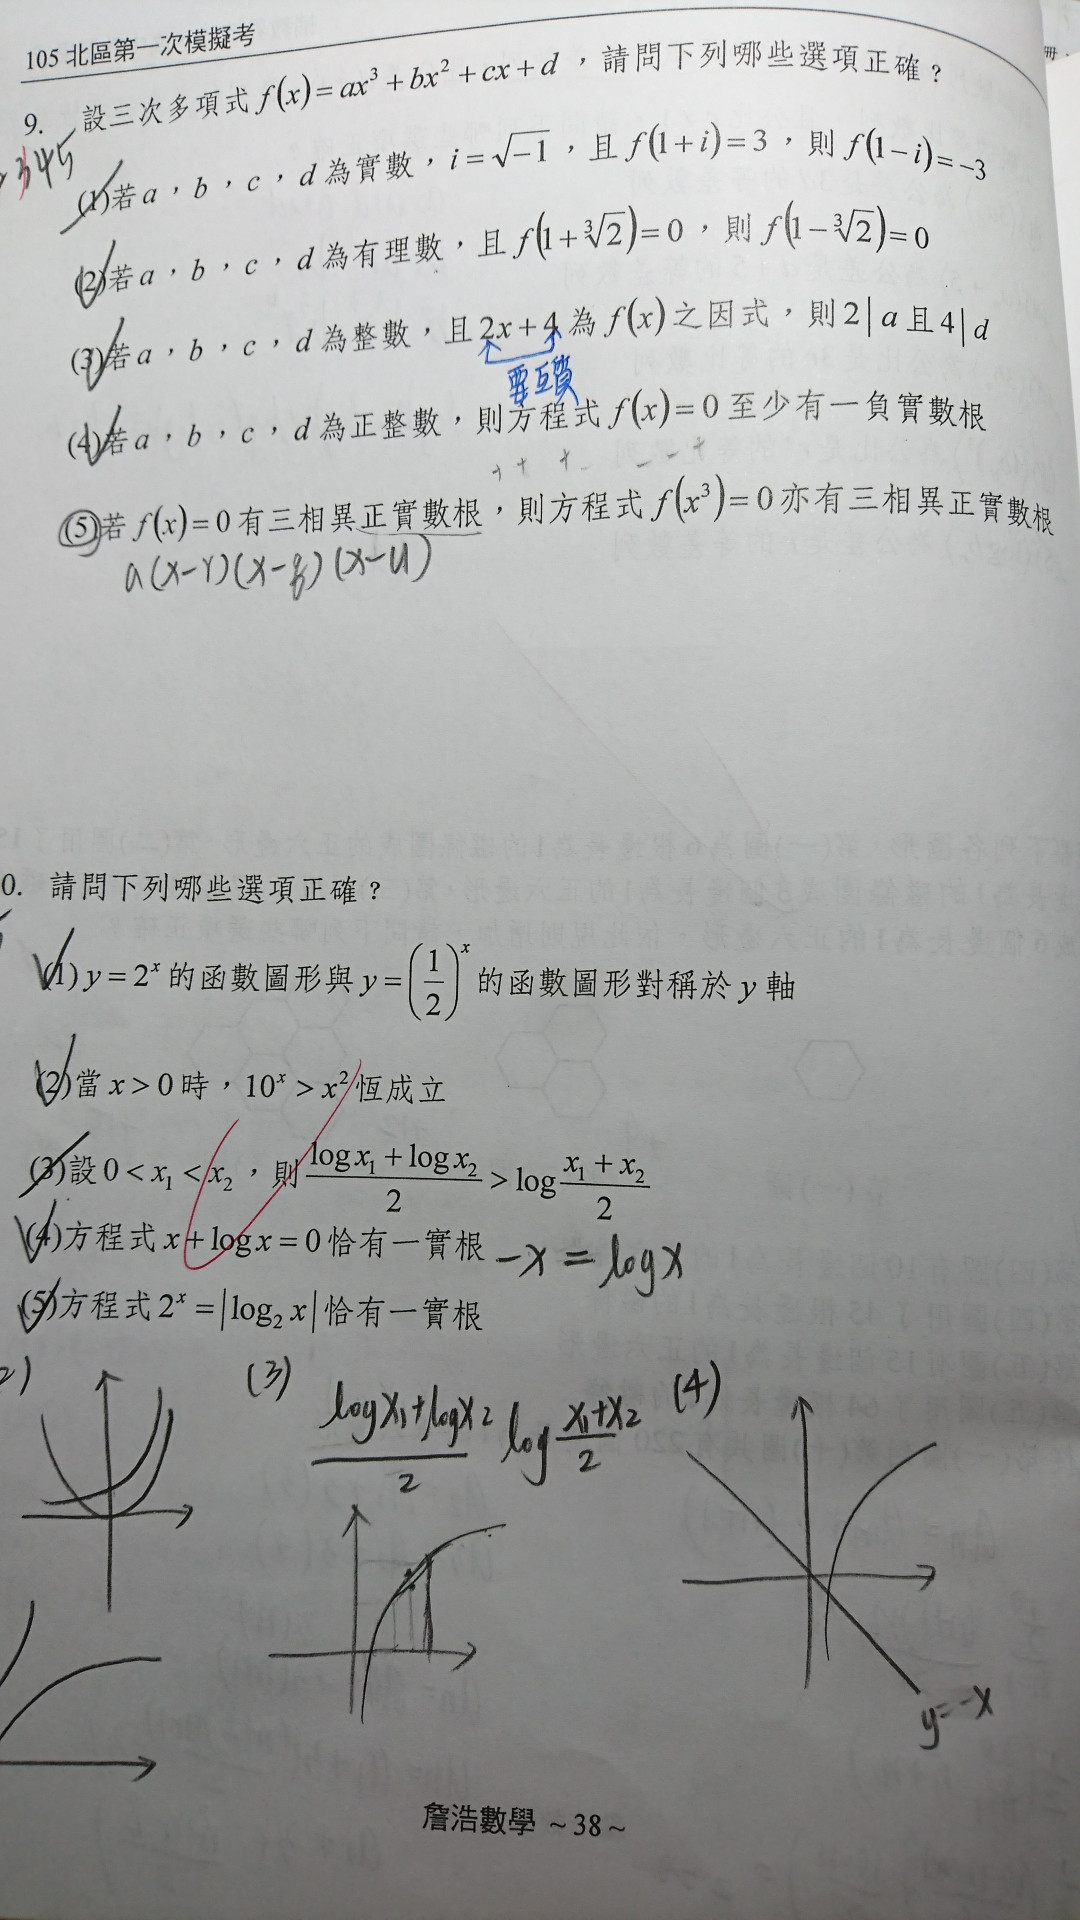 105 北區第一次模擬考
9. 設三次多項式 f(x)=ax³+bx²+cx+d，請問下列哪些選項正確？
345
(1)若a，b，c，d為實數，i=√-1，且f(1+i)=3，則f(1-i)=-3
(2)若a，b，c，d為有理數，且f(1+∛2)=0，則f(1-∛2)=0
(3)若a，b，c，d為整數，且2x+4為f(x)之因式，則2|a且4|d
要互質
(4)若a，b，c，d為正整數，則方程式f(x)=0至少有一負實數根
+ + + - - - +
(5)若f(x)=0有三相異正實數根，則方程式f(x³)=0亦有三相異正實數根
a(x-r)(x-g)(x-u)
0. 請問下列哪些選項正確？
(1)y=2ˣ的函數圖形與y=(1/2)ˣ的函數圖形對稱於y軸
(2)當x>0時，10ˣ>x²恆成立
(3)設0<x₁<x₂，則 (logx₁+logx₂)/2 > log (x₁+x₂)/2
(4)方程式x+logx=0恰有一實根 -x=logx
(5)方程式2ˣ=|log₂x|恰有一實根
2) (3) (logx₁+logx₂)/2 log (x₁+x₂)/2 (4)
y=-x
詹浩數學 ~38~